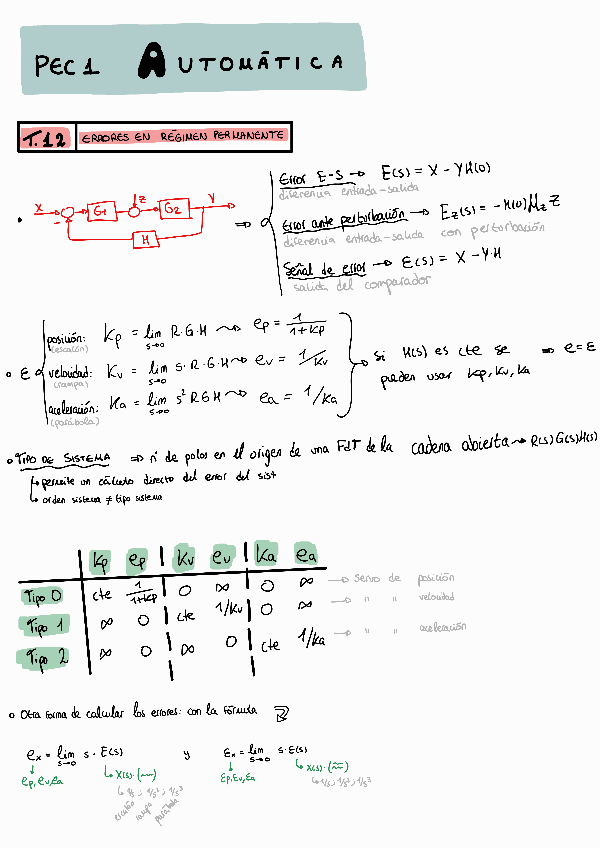 PEC 1 AUTOMÁTICA
T.12 ERRORES EN RÉGIMEN PERMANENTE
X - G1 Z G2 Y
H
⇒
Error E-S → E(s) = X - YH(0)
diferencia entrada-salida
Error ante perturbación → Ez(s) = -H(0) Mz Z
diferencia entrada-salida con perturbación
Señal de error → Ɛ(s) = X - Y·H
salida del comparador
Ɛ
posición: Kp = lim s→0 R·G·H ⇝ ep = 1/(1+Kp)
(escalón)
velocidad: Kv = lim s→0 s·R·G·H ⇝ ev = 1/Kv
(rampa)
aceleración: Ka = lim s→0 s² R G H ⇝ ea = 1/Ka
(parábola)
Si H(s) es cte se ⇒ e=Ɛ
pueden usar Kp, Kv, Ka
TIPO DE SISTEMA ⇒ nº de polos en el origen de una FdT de la cadena abierta → R(s)G(s)H(s)
↳ permite un cálculo directo del error del sist
↳ orden sistema ≠ tipo sistema
Kp ep Kv ev Ka ea
Tipo 0 cte 1/(1+Kp) 0 ∞ 0 ∞ → Servo de posición
Tipo 1 ∞ 0 cte 1/Kv 0 ∞ → " " velocidad
Tipo 2 ∞ 0 ∞ 0 cte 1/Ka → " " aceleración
Otra forma de calcular los errores: con la fórmula
ex = lim s→0 s·E(s) y Ɛx = lim s→0 s·Ɛ(s)
ep, ev, ea ↳ X(s)·(~~) Ɛp, Ɛv, Ɛa ↳ X(s)·(~~)
↳ 1/s ; 1/s² ; 1/s³ ↳ 1/s ; 1/s² ; 1/s³
escalón rampa parábola